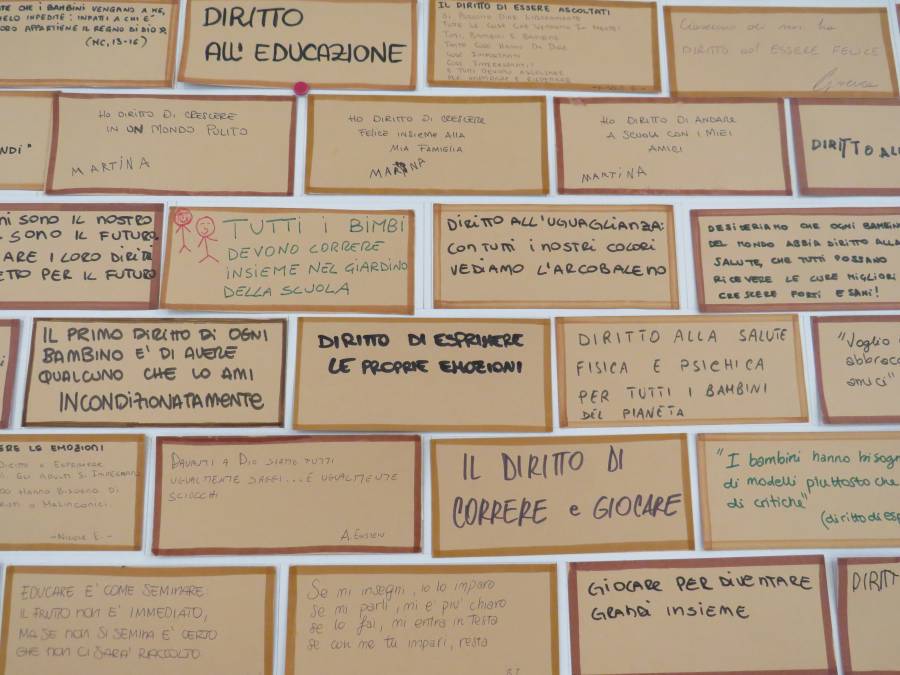 CHE I BAMBINI VENGANO A ME,
IMPEDITE: INFATI A CHI E'
APPARTIENE IL REGNO DI DIO
(MC, 13-16)
DIRITTO
ALL'EDUCAZIONE
IL DIRITTO DI ESSERE ASCOLTATI
DI POTERSI DIRE LIBERAMENTE
TUTTE LE COSE CHE VENGONO IN MENTE!
TUTTI, BAMBINI E BAMBINE
TANTE COSE HANNO DA DIRE
COSE IMPORTANTI
COSE INTERESSANTI!
E TUTTI DEVONO ASCOLTARE
Ciascuno di noi ha
DIRITTO ad ESSERE FELICE
NDI"
HO DIRITTO DI CRESCERE
IN UN MONDO PULITO
MARTINA
HO DIRITTO DI CRESCERE
FELICE INSIEME ALLA
MIA FAMIGLIA
MARTINA
HO DIRITTO DI ANDARE
A SCUOLA CON I MIEI
AMICI
MARTINA
DIRITTO ALL
NI SONO IL NOSTRO
SONO IL FUTURO.
ARE I LORO DIRITTI
ETTO PER IL FUTURO
TUTTI I BIMBI
DEVONO CORRERE
INSIEME NEL GIARDINO
DELLA SCUOLA
DIRITTO ALL'UGUAGLIANZA:
CON TUTTI I NOSTRI COLORI
VEDIAMO L'ARCOBALENO
DESIDERIAMO CHE OGNI BAMBIN
DEL MONDO ABBIA DIRITTO ALLA
SALUTE, CHE TUTTI POSSANO
RICEVERE LE CURE MIGLIORI
CRESCERE FORTI E SANI!
IL PRIMO DIRITTO DI OGNI
BAMBINO E' DI AVERE
QUALCUNO CHE LO AMI
INCONDIZIONATAMENTE
DIRITTO DI ESPRIMERE
LE PROPRIE EMOZIONI
DIRITTO ALLA SALUTE
FISICA E PSICHICA
PER TUTTI I BAMBINI
DEL PIANETA
"Voglio
abbracc
amici"
ERE LE EMOZIONI
DIRITTO A ESPRIMERE
GLI ADULTI S'IMPEGNAN
HANNO BISOGNO DI
O MALINCONICI.
-NICOLE E.-
DAVANTI A DIO SIAMO TUTTI
UGUALMENTE SAGGI...E UGUALMENTE
SCIOCCHI
A. EINSTEIN
IL DIRITTO DI
CORRERE e GIOCARE
"I bambini hanno bisogn
di modelli piuttosto che
di critiche"
(diritto di esp
EDUCARE E' COME SEMINARE:
IL FRUTTO NON E' IMMEDIATO,
MA SE NON SI SEMINA E' CERTO
CHE NON CI SARA' RACCOLTO
Se mi insegni, io lo imparo
se mi parli, mi e' piu' chiaro
se lo fai, mi entra in testa
se con me tu impari, resta
GIOCARE PER DIVENTARE
GRANDI INSIEME
DIRITT